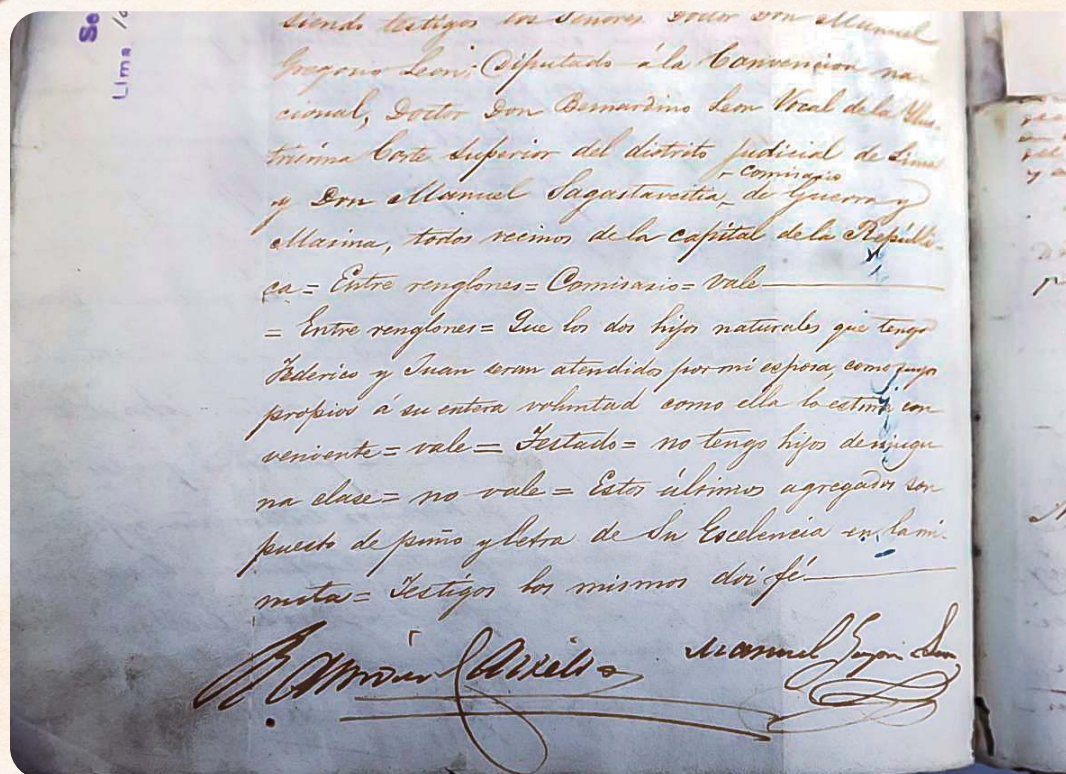 Se
Lima
siendo testigos los Señores Doctor Don Manuel
Gregorio Leon; Diputado á la Convencion na-
cional, Doctor Don Bernardino Leon Vocal de la Ilus-
trísima Corte Superior del distrito judicial de Lima
comisario
y Don Manuel Sagastaveitia, de Guerra y
Marina, todos vecinos de la capital de la Repúbli-
ca = Entre renglones = Comisario = vale
= Entre renglones = Que los dos hijos naturales que tengo
Federico y Juan seran atendidos por mi esposa, como suyos
propios á su entera voluntad como ella lo estime con
veniente = vale = Testado = no tengo hijos de ningu
na clase = no vale = Estos últimos agregados son
puesto de puño y letra de Su Excelencia en la mi-
nuta = Testigos los mismos doi fé
Ramon Castilla Manuel Gregorio Leon